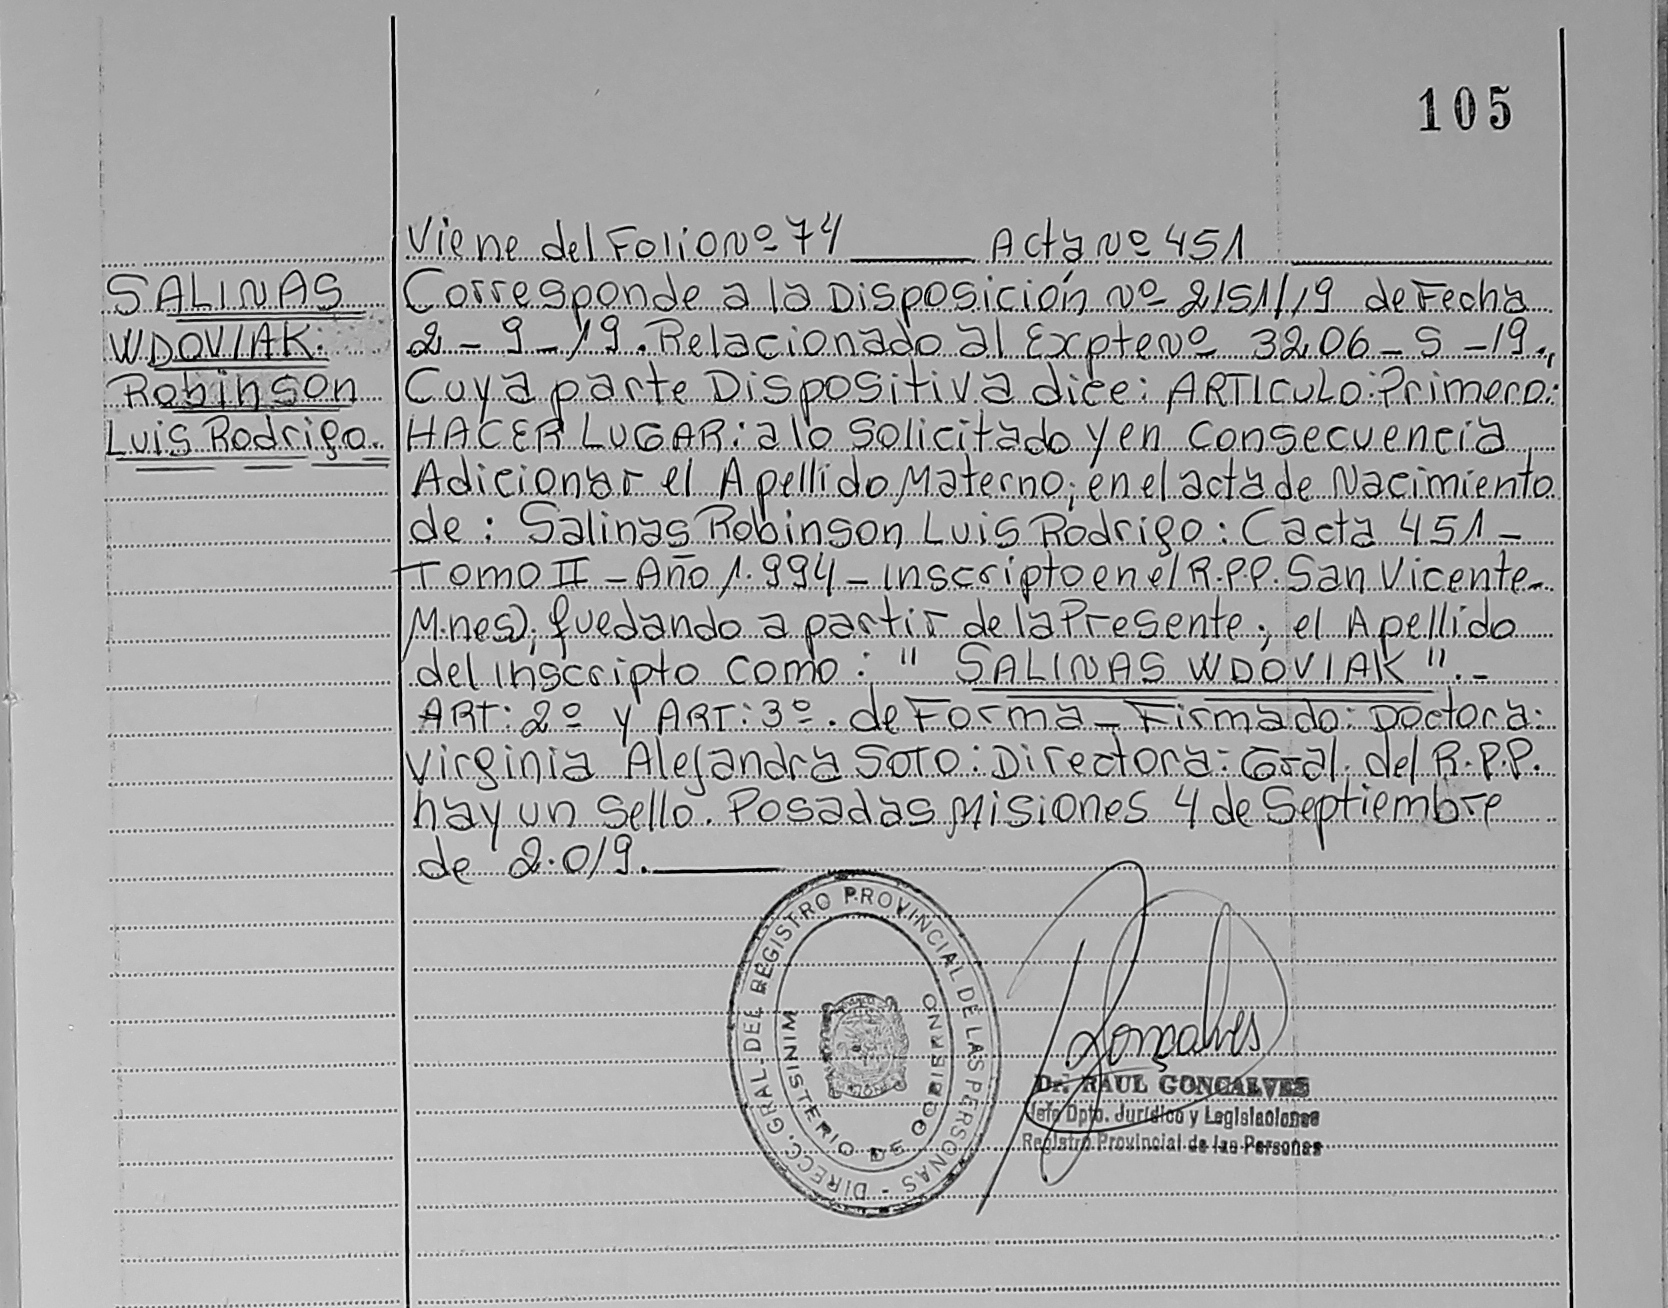 105
Viene del Folio Nº 74 Acta Nº 451
SALINAS
WDOVIAK.
Robinson
Luis Rodrigo.
Corresponde a la Disposición Nº 2151/19 de Fecha
2-9-19. Relacionado al Expte Nº 3206-S-19.,
Cuya parte Dispositiva dice: ARTICULO: Primero:
HACER LUGAR: a lo Solicitado y en Consecuencia
Adicionar el Apellido Materno; en el acta de Nacimiento
de: Salinas Robinson Luis Rodrigo: (acta 451-
Tomo II - Año 1.994 - inscripto en el R.P.P. San Vicente-
M.nes); quedando a partir de la Presente; el Apellido
del inscripto como: " SALINAS WDOVIAK".-
ART: 2º y ART: 3º. de Forma - Firmado: Doctora:
Virginia Alejandra SOTO: Directora: Gral. del R.P.P.
hay un Sello. Posadas Misiones 4 de Septiembre
de 2.019.
DIRECC. GRAL. DEL REGISTRO PROVINCIAL DE LAS PERSONAS -
MINISTERIO DE GOBIERNO
Gonçalves
Dr. RAUL GONCALVES
Jefe Dpto. Jurídico y Legislaciones
Registro Provincial de las Personas